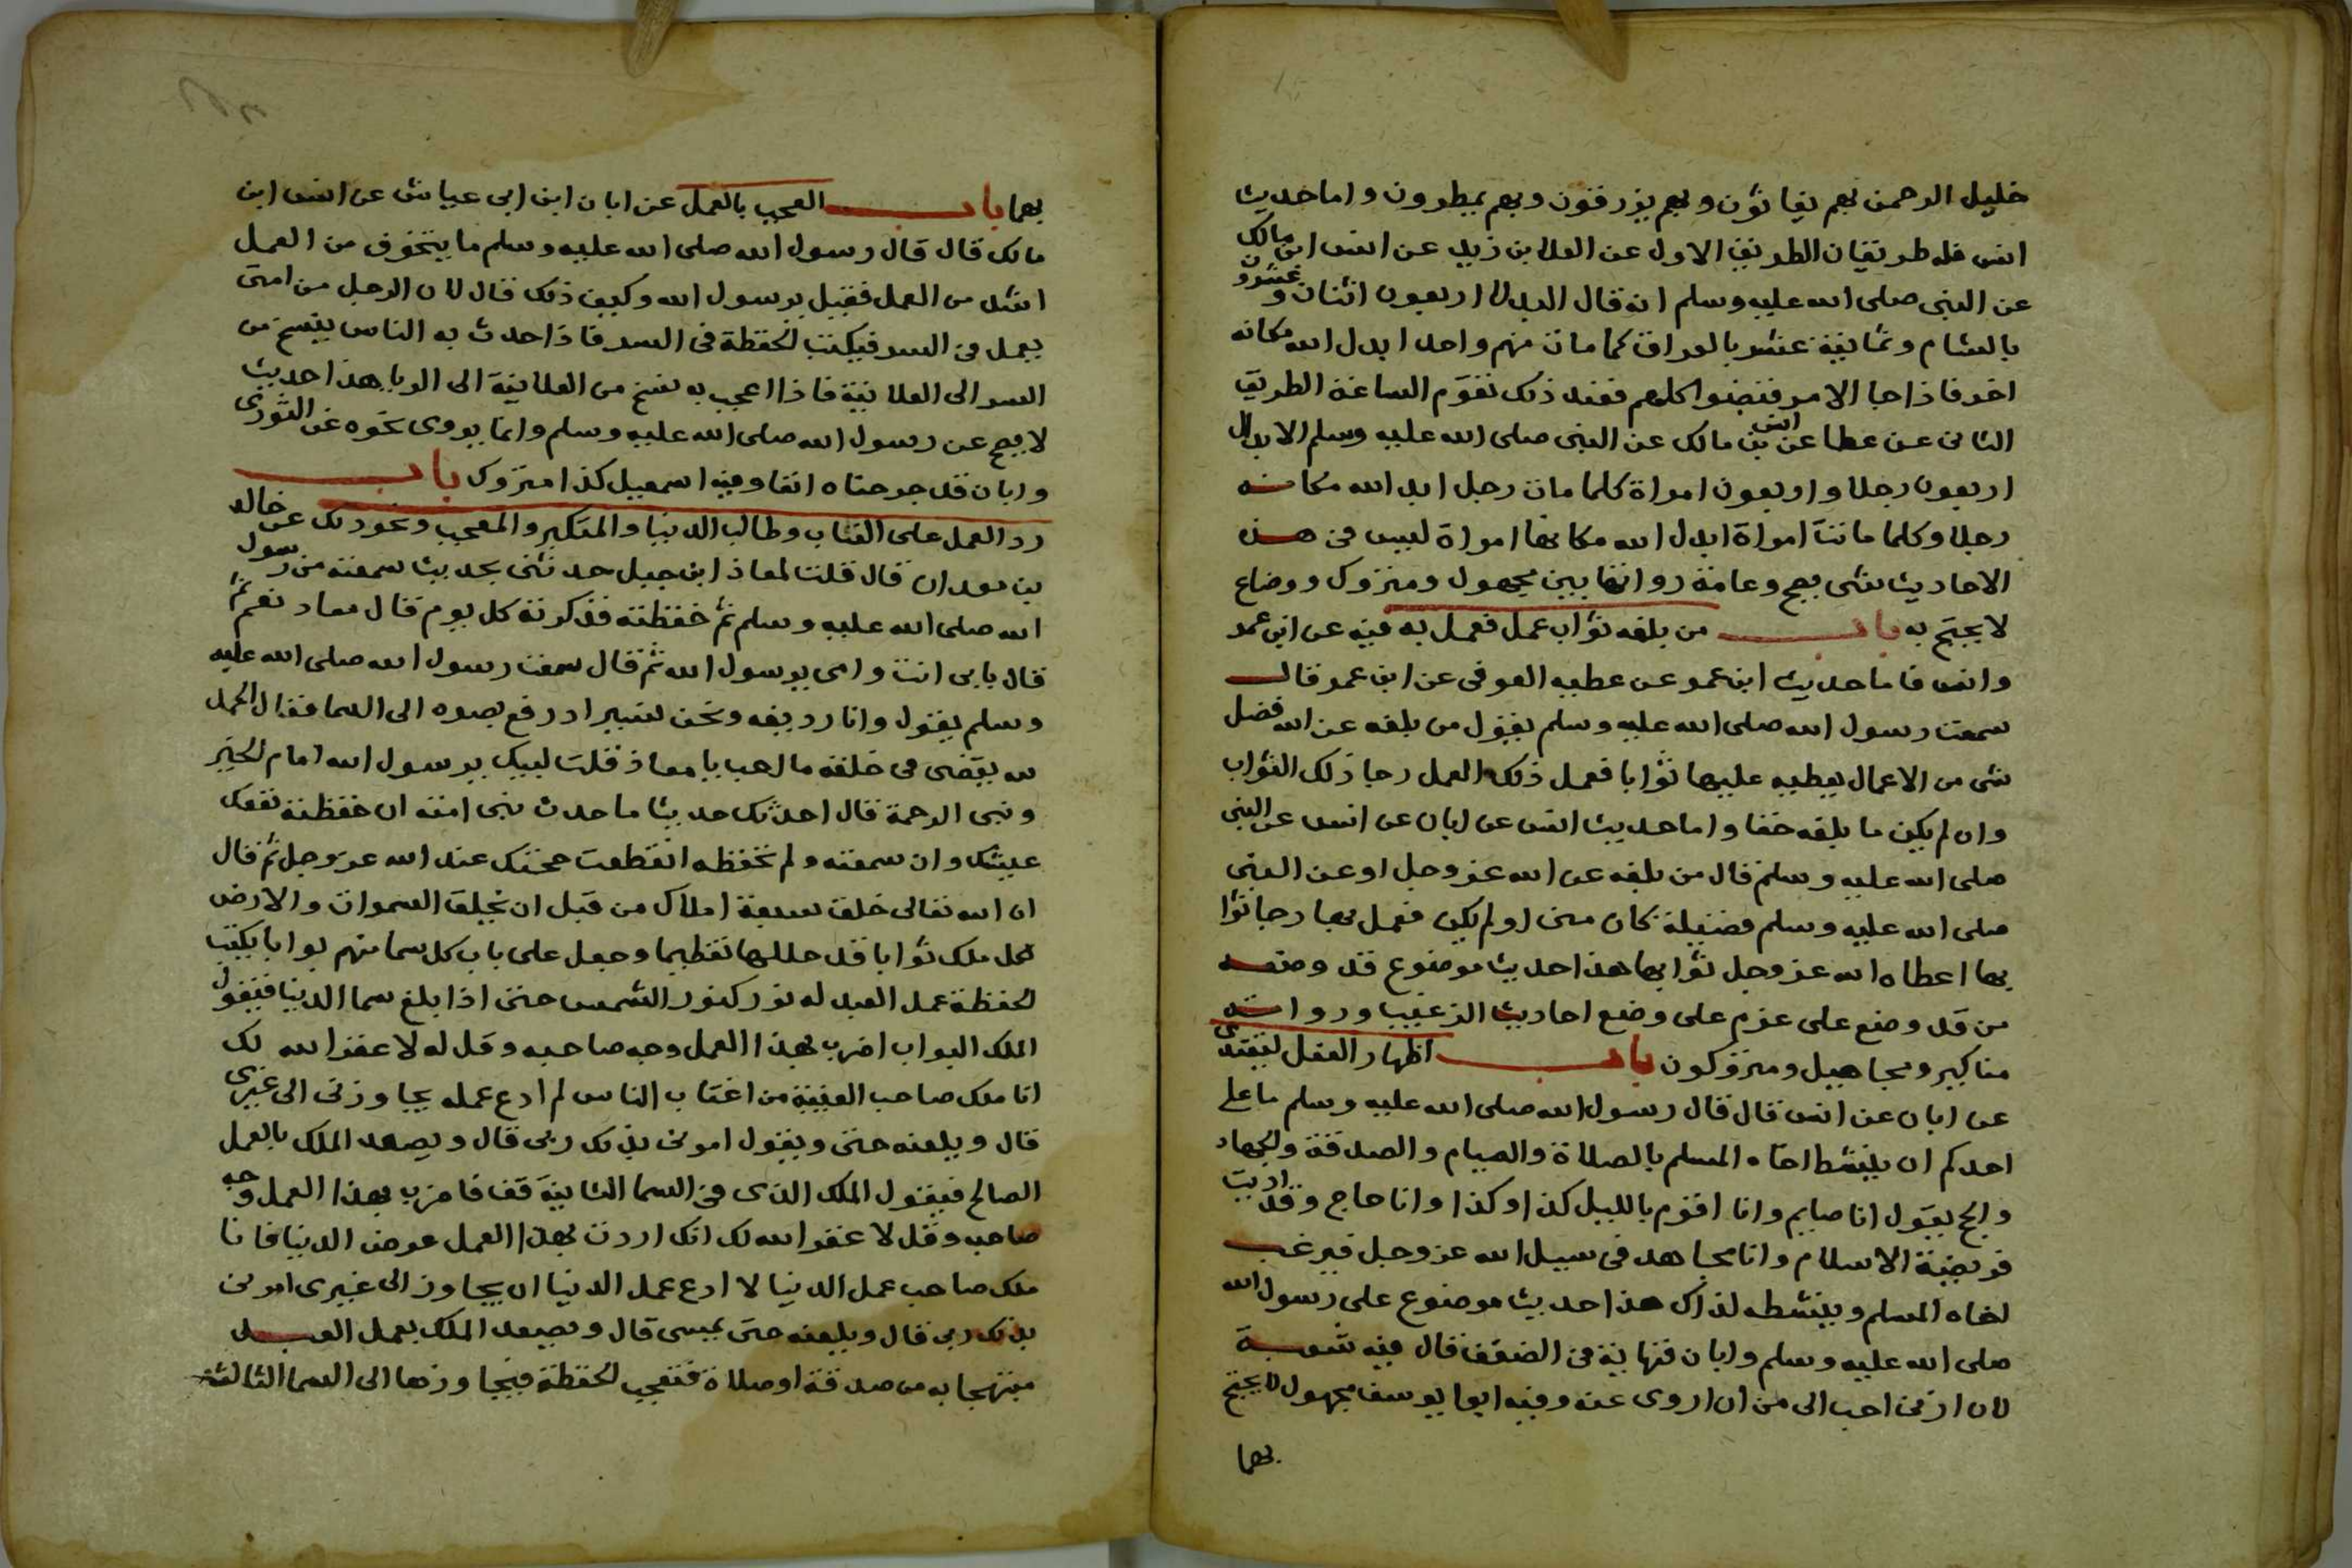 خليل الرحمن بهم يغاثون وبهم يرزقون وبهم يمطرون واما حديث
انس فله طريقان الطريق الاول عن العلا بن زيد عن انس ابن مالك
عن النبى صلى الله عليه وسلم انه قال البدلا اربعون اثنان وعشرون
بالشام وثمانية عشر بالعراق كما مات منهم واحد ابدل الله مكانه
اخر فاذا جا الامر فقبضوا كلهم فعند ذلك تقوم الساعة الطريق
الثانى عن عطا عن انس بن مالك عن النبى صلى الله عليه وسلم الابدال
اربعون رجلا واربعون امراة كلما مات رجل ابدل الله مكانه
رجلا وكلما ماتت امراة ابدل الله مكانها امراة ليس فى هذه
الاحاديث شى يصح وعامة رواتها بين مجهول ومتروك ووضاع
لا يحتج به باب من بلغه ثواب عمل فعمل به فيه عن ابن عمر
وانس فاما حديث ابن عمر عن عطيه العوفى عن ابن عمر قال
سمعت رسول الله صلى الله عليه وسلم يقول من بلغه عن الله فضل
شى من الاعمال يعطيه عليها ثوابا فعمل ذلك العمل رجا ذلك الثواب
وان لم يكن ما بلغه حقا واما حديث انس عن ابان عن انس عن النبى
صلى الله عليه وسلم قال من بلغه عن الله عز وجل او عن النبى
صلى الله عليه وسلم فضيلة كان منى اولم يكن فعمل بها رجا ثوا
بها اعطاه الله عز وجل ثوابها هذا حديث موضوع قد وضعه
من قد وضع على عزم على وضع احاديث الترغيب ورواته
مناكير ومجاهيل ومتروكون باب اظهار الفعل ليقتدى
عن ابان عن انس قال قال رسول الله صلى الله عليه وسلم ما على
احدكم ان ينشط اخاه المسلم بالصلاة والصيام والصدقة والجهاد
والحج يقول انا صايم وانا اقوم بالليل كذا وكذا وانا حاج وقد اديت
فريضة الاسلام وانا مجاهد فى سبيل الله عز وجل فيرغب
اخاه المسلم وينشطه لذاك هذا حديث موضوع على رسول الله
صلى الله عليه وسلم وابان فنهاية فى الضعف قال فيه شعبة
لان ازنى احب الى من ان اروى عنه وفيه ابوا يوسف مجهول لا يحتج
بهما
بهما باب العجب بالعمل عن ابان ابن ابى عياش عن انس ابن
مالك قال قال رسول الله صلى الله عليه وسلم ما يتخوف من العمل
اشد من العمل فقيل يرسول الله وكيف ذلك قال لان الرجل من امتى
يعمل فى السر فيكتب الحفظة فى السر فاذا حدث به الناس ينسخ من
السر الى العلانية فاذا اعجب به نسخ من العلانية الى الريا هذا حديث
لا يصح عن رسول الله صلى الله عليه وسلم وانما يروى نحوه عن الثورى
وابان قد جرحناه انفا وفيه اسمعيل كذا متروك باب
رد العمل على المغتاب وطالب الدنيا والمتكبر والمعجب ونحو ذلك عن خالد
بن معدان قال قلت لمعاذ ابن جبل حدثنى بحديث سمعته من رسول
الله صلى الله عليه وسلم ثم حفظته فذكرته كل يوم قال معاذ نعم ثم
قال بابى انت وامى يرسول الله ثم قال سمعت رسول الله صلى الله عليه
وسلم يقول وانا رديفه ونحن نسير اذ رفع بصره الى السما فقال الحمد
لله يقضى فى خلقه ما احب يا معاذ قلت لبيك يرسول الله امام الخير
ونبى الرحمة قال احدثك حديثا ما حدث نبى امته ان حفظته نفعك
عيشك وان سمعته ولم تحفظه انقطعت حجتك عند الله عز وجل ثم قال
ان الله تعالى خلق سبعة املاك من قبل ان يخلق السموات والارض
لكل ملك ثوابا قد جللها تعظيما وجعل على باب كل سما منهم بوابا يكتب
الحفظة عمل العبد له نور كنور الشمس حتى اذا بلغ سما الدنيا فيقول
الملك البواب اضرب بهذا العمل وجه صاحبه وقل له لا غفر الله لك
انا ملك صاحب الغيبة من اغتاب الناس لم ادع عمله يجاوزنى الى غيرى
قال ويلعنه حتى ويقول امرنى بذلك ربى قال ويصعد الملك بالعمل
الصالح فيقول الملك الذى فى السما الثانية قف فاضرب بهذا العمل وجه
صاحبه وقل لا غفر الله لك انك اردت بهذا العمل عرض الدنيا فانا
ملك صاحب عمل الدنيا لا ادع عمل الدنيا ان يجاوز الى غيرى امرنى
بذلك ربى قال ويلعنه حتى يمسى قال ويصعد الملك بعمل العبد
مبتهجا به من صدقة او صلاة فتعجب الحفظة فيجاوزها الى السما الثالثة